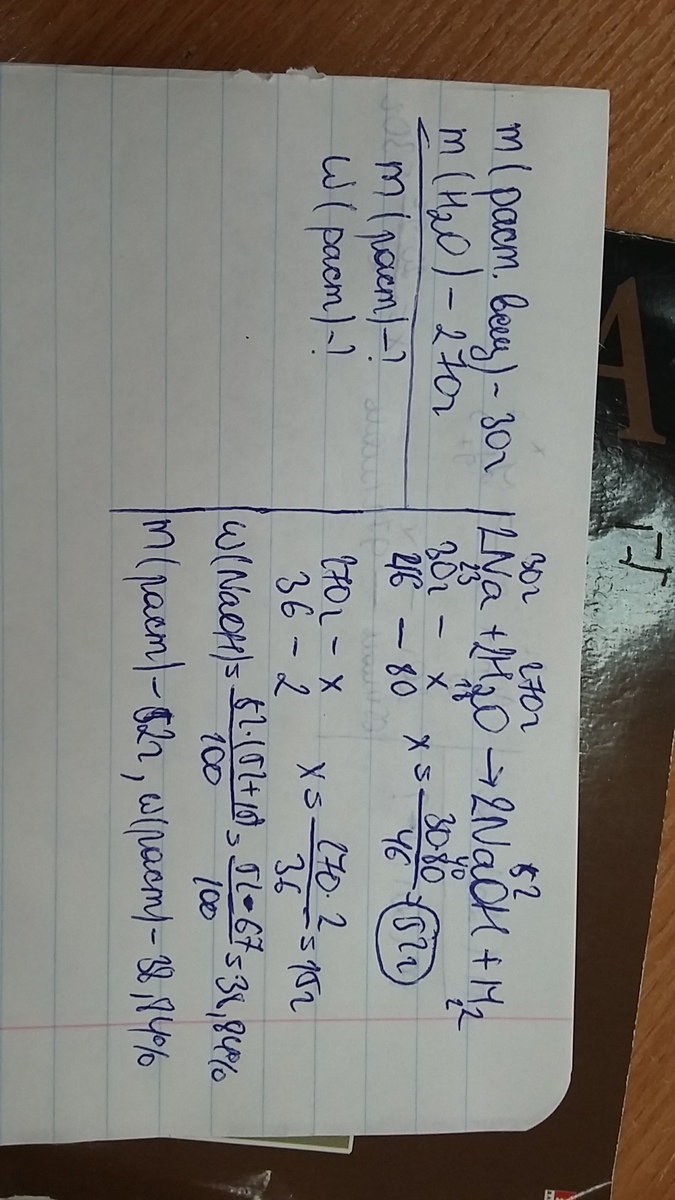 m(раст. вещ) - 30г
m(H₂O) - 270г
m(раст) - ?
w(раст) - ?
30г 270г 52
2Na + 2H₂O → 2NaOH + H₂
23 18 40 2
30г - x x = 30·80 / 46 = 52г
46 - 80
270г - x x = 270·2 / 36 = 15г
36 - 2
w(NaOH) = 52·(52+15) / 100 = 52·67 / 100 = 34,84%
m(раст) - 52г, w(раст) - 34,84%
A